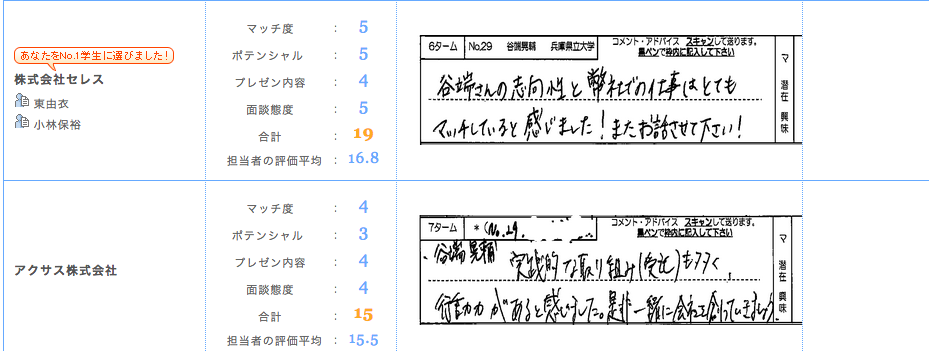 あなたをNo.1学生に選びました!
株式会社セレス
東由衣
小林保裕
マッチ度 : 5
ポテンシャル : 5
プレゼン内容 : 4
面談態度 : 5
合計 : 19
担当者の評価平均 : 16.8
6ターム No.29 谷端晃輔 兵庫県立大学
コメント・アドバイス スキャンして送ります。
黒ペンで枠内に記入して下さい
谷端さんの志向性と弊社での仕事はとても
マッチしていると感じました!またお話させて下さい!
マ
潜在
興味
アクサス株式会社
マッチ度 : 4
ポテンシャル : 3
プレゼン内容 : 4
面談態度 : 4
合計 : 15
担当者の評価平均 : 15.5
7ターム *(No.29.
コメント・アドバイス スキャンして送ります。
黒ペンで枠内に記入して下さい
・谷端晃輔 実践的な取り組み(実社)も多く、
行動力があると感じました。是非一緒に会社を創っていきましょう。
マ
潜在
興味